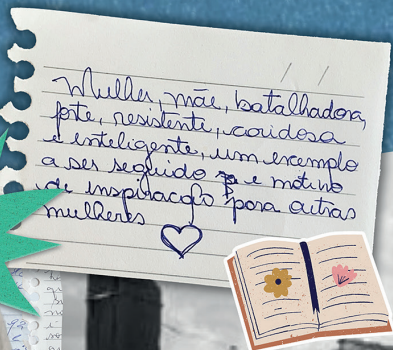 Mulher, mãe, batalhadora,
forte, resistente, caridosa
e inteligente, um exemplo
a ser seguido e motivo
de inspiração para outras
mulheres